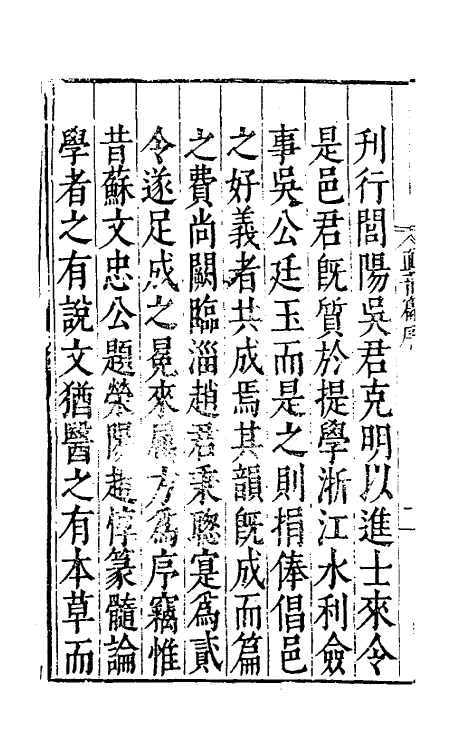 刊行閭陽吳君克明以進士來令
是邑君旣質於提學浙江水利僉
事吳公廷玉而是之則捐俸倡邑
之好義者共成焉其韻旣成而篇
之費尚闕臨淄趙君秉聦寔為貳
令遂足成之冕來屬方為序竊惟
昔蘇文忠公題滎陽趙惇篆髓論
學者之有說文猶醫之有本草而
韻篇序
二